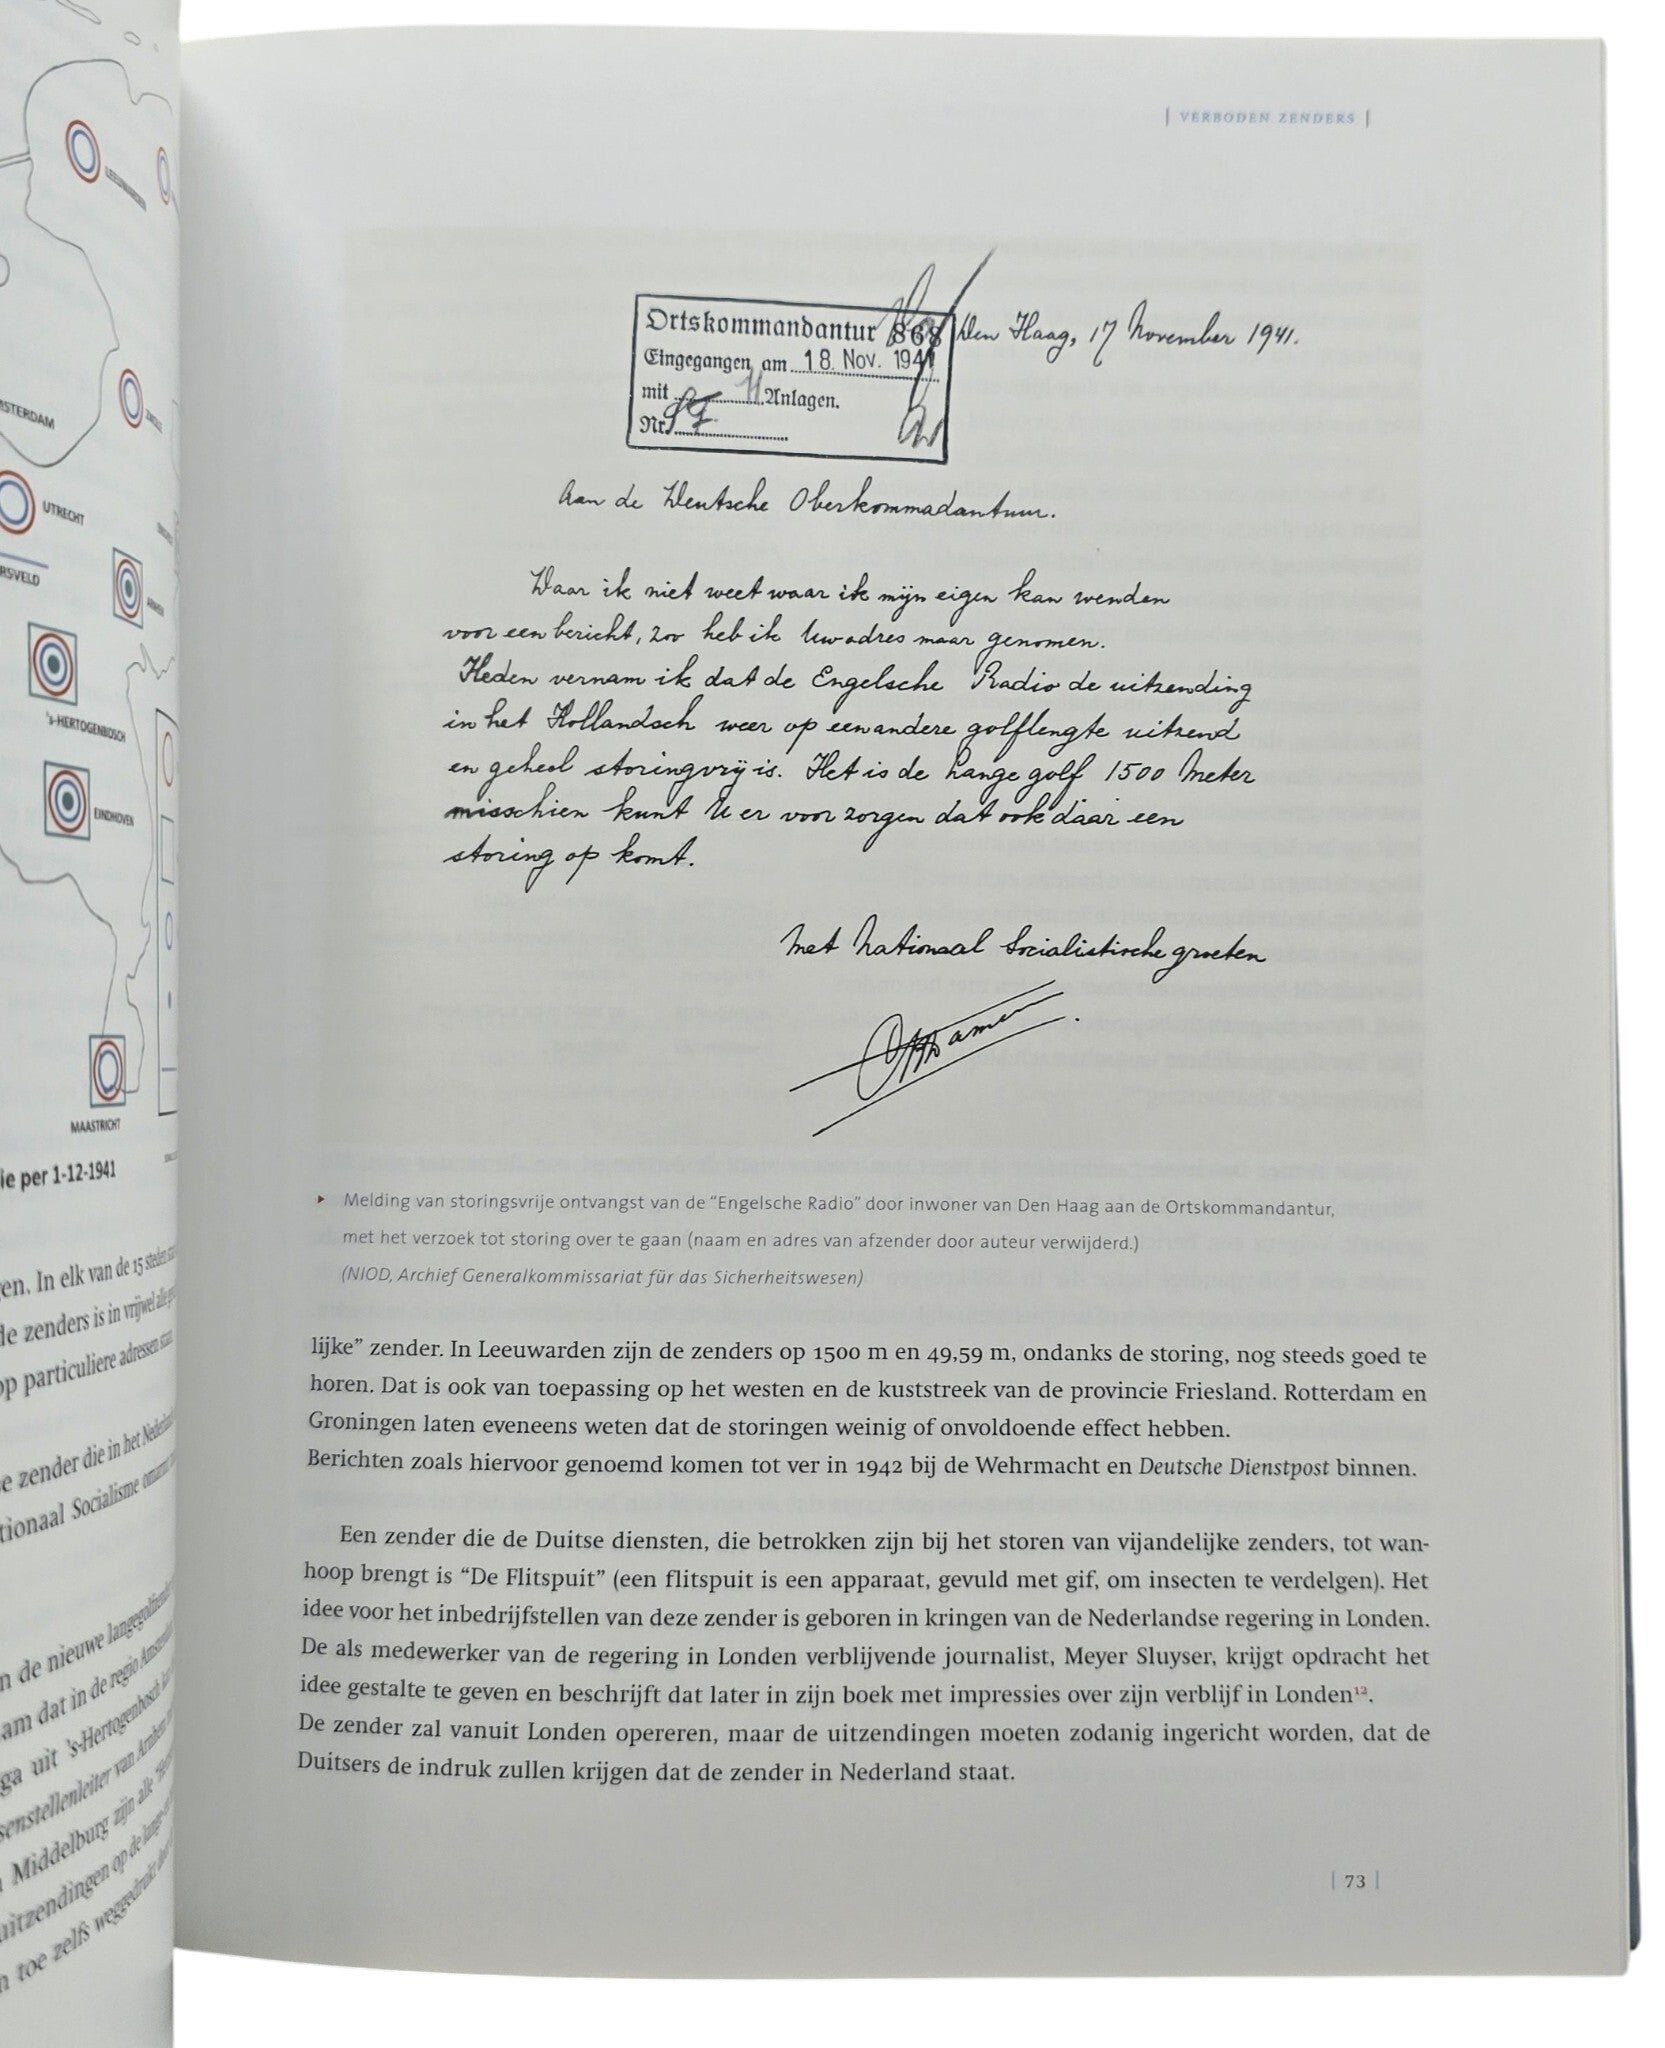 LEEUWARDEN
MSTERDAM
UTRECHT
RSVELD
's-HERTOGENBOSCH
EINDHOVEN
MAASTRICHT
ie per 1-12-1941
en. In elk van de 15 steden
de zenders is in vrijwel alle
op particuliere adressen staat
e zender die in het Nederland
tionaal Socialisme
n de nieuwe langegolfzender
am dat in de regio Amsterdam
ga uit 's-Hertogenbosch
senstellenleiter van Arnhem
Middelburg zijn alle
uitzendingen op de lange
n toe zelfs weggedrukt door
| VERBODEN ZENDERS |
Ortskommandantur 868
Eingegangen am 18. Nov. 1941
mit Anlagen.
Nr.
Den Haag, 17 November 1941.
Aan de Deutsche Oberkommadantuur.
Daar ik niet weet waar ik mijn eigen kan wenden
voor een bericht, zoo heb ik Uw adres maar genomen.
Heden vernam ik dat de Engelsche Radio de uitzending
in het Hollandsch weer op een andere golflengte uitzend
en geheel storingvrij is. Het is de Lange golf 1500 Meter
misschien kunt U er voor zorgen dat ook daar een
storing op komt.
Met Nationaal Socialistische groeten
▸ Melding van storingsvrije ontvangst van de “Engelsche Radio” door inwoner van Den Haag aan de Ortskommandantur,
met het verzoek tot storing over te gaan (naam en adres van afzender door auteur verwijderd.)
(NIOD, Archief Generalkommissariat für das Sicherheitswesen)
lijke” zender. In Leeuwarden zijn de zenders op 1500 m en 49,59 m, ondanks de storing, nog steeds goed te
horen. Dat is ook van toepassing op het westen en de kuststreek van de provincie Friesland. Rotterdam en
Groningen laten eveneens weten dat de storingen weinig of onvoldoende effect hebben.
Berichten zoals hiervoor genoemd komen tot ver in 1942 bij de Wehrmacht en Deutsche Dienstpost binnen.
Een zender die de Duitse diensten, die betrokken zijn bij het storen van vijandelijke zenders, tot wan-
hoop brengt is “De Flitspuit” (een flitspuit is een apparaat, gevuld met gif, om insecten te verdelgen). Het
idee voor het inbedrijfstellen van deze zender is geboren in kringen van de Nederlandse regering in Londen.
De als medewerker van de regering in Londen verblijvende journalist, Meyer Sluyser, krijgt opdracht het
idee gestalte te geven en beschrijft dat later in zijn boek met impressies over zijn verblijf in Londen¹².
De zender zal vanuit Londen opereren, maar de uitzendingen moeten zodanig ingericht worden, dat de
Duitsers de indruk zullen krijgen dat de zender in Nederland staat.
| 73 |